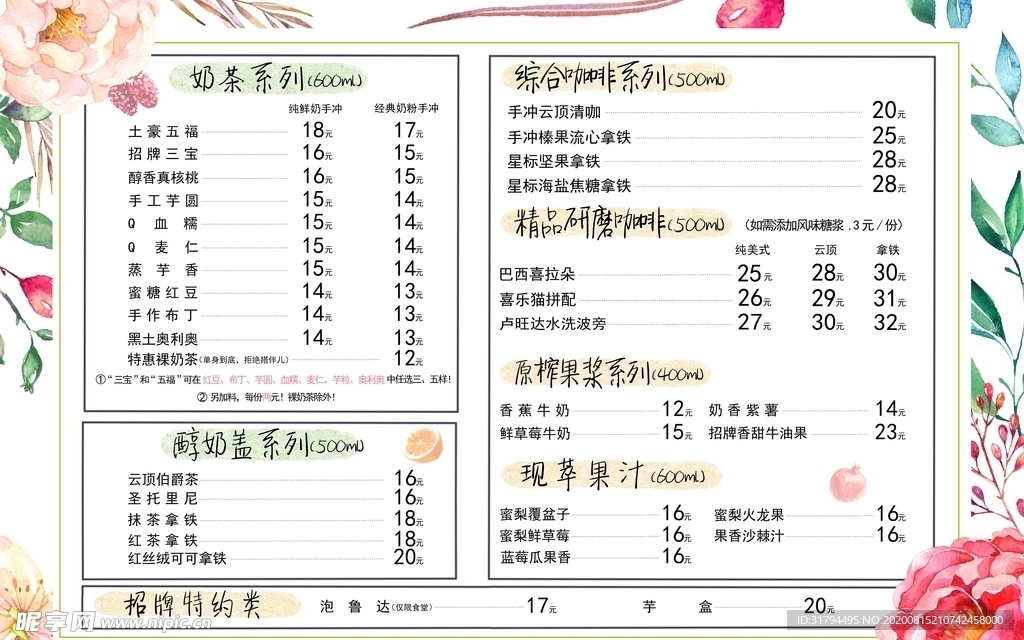 奶茶系列(600ml)
纯鲜奶手冲 经典奶粉手冲
土豪五福 18元 17元
招牌三宝 16元 15元
醇香真核桃 16元 15元
手工芋圆 15元 14元
Q血糯 15元 14元
Q麦仁 15元 14元
蒸芋香 15元 14元
蜜糖红豆 14元 13元
手作布丁 14元 13元
黑土奥利奥 14元 13元
特惠裸奶茶(单身到底，拒绝搭伴儿) 12元
①“三宝”和“五福”可在 红豆、布丁、芋圆、血糯、麦仁、芋粒、奥利奥 中任选三、五样!
② 另加料，每份两元! 裸奶茶除外!
醇奶盖系列(500ml)
云顶伯爵茶 16元
圣托里尼 16元
抹茶拿铁 18元
红茶拿铁 18元
红丝绒可可拿铁 20元
综合咖啡系列(500ml)
手冲云顶清咖 20元
手冲榛果流心拿铁 25元
星标坚果拿铁 28元
星标海盐焦糖拿铁 28元
精品研磨咖啡(500ml) (如需添加风味糖浆 .3元/份)
纯美式 云顶 拿铁
巴西喜拉朵 25元 28元 30元
喜乐猫拼配 26元 29元 31元
卢旺达水洗波旁 27元 30元 32元
原榨果浆系列(400ml)
香蕉牛奶 12元 奶香紫薯 14元
鲜草莓牛奶 15元 招牌香甜牛油果 23元
现萃果汁(600ml)
蜜梨覆盆子 16元 蜜梨火龙果 16元
蜜梨鲜草莓 16元 果香沙棘汁 16元
蓝莓瓜果香 16元
招牌特约类 泡鲁达(仅限食堂) 17元 芋盒 20元
昵享网 www.nipic.cn
ID:31794495 NO:20200815210742458000